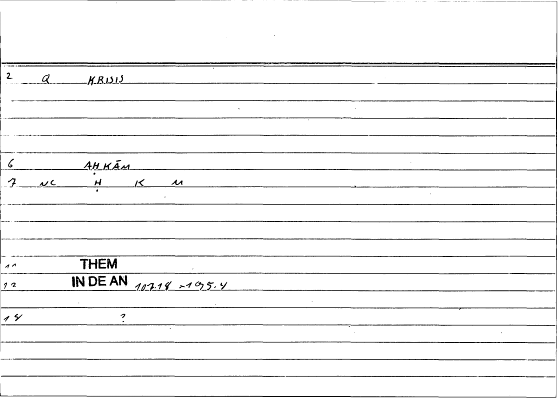 2 Q KRISIS
6 AḤKĀM
7 NC Ḥ K M
11 THEM
12 IN DE AN 107.18 = 195.4
14 ?